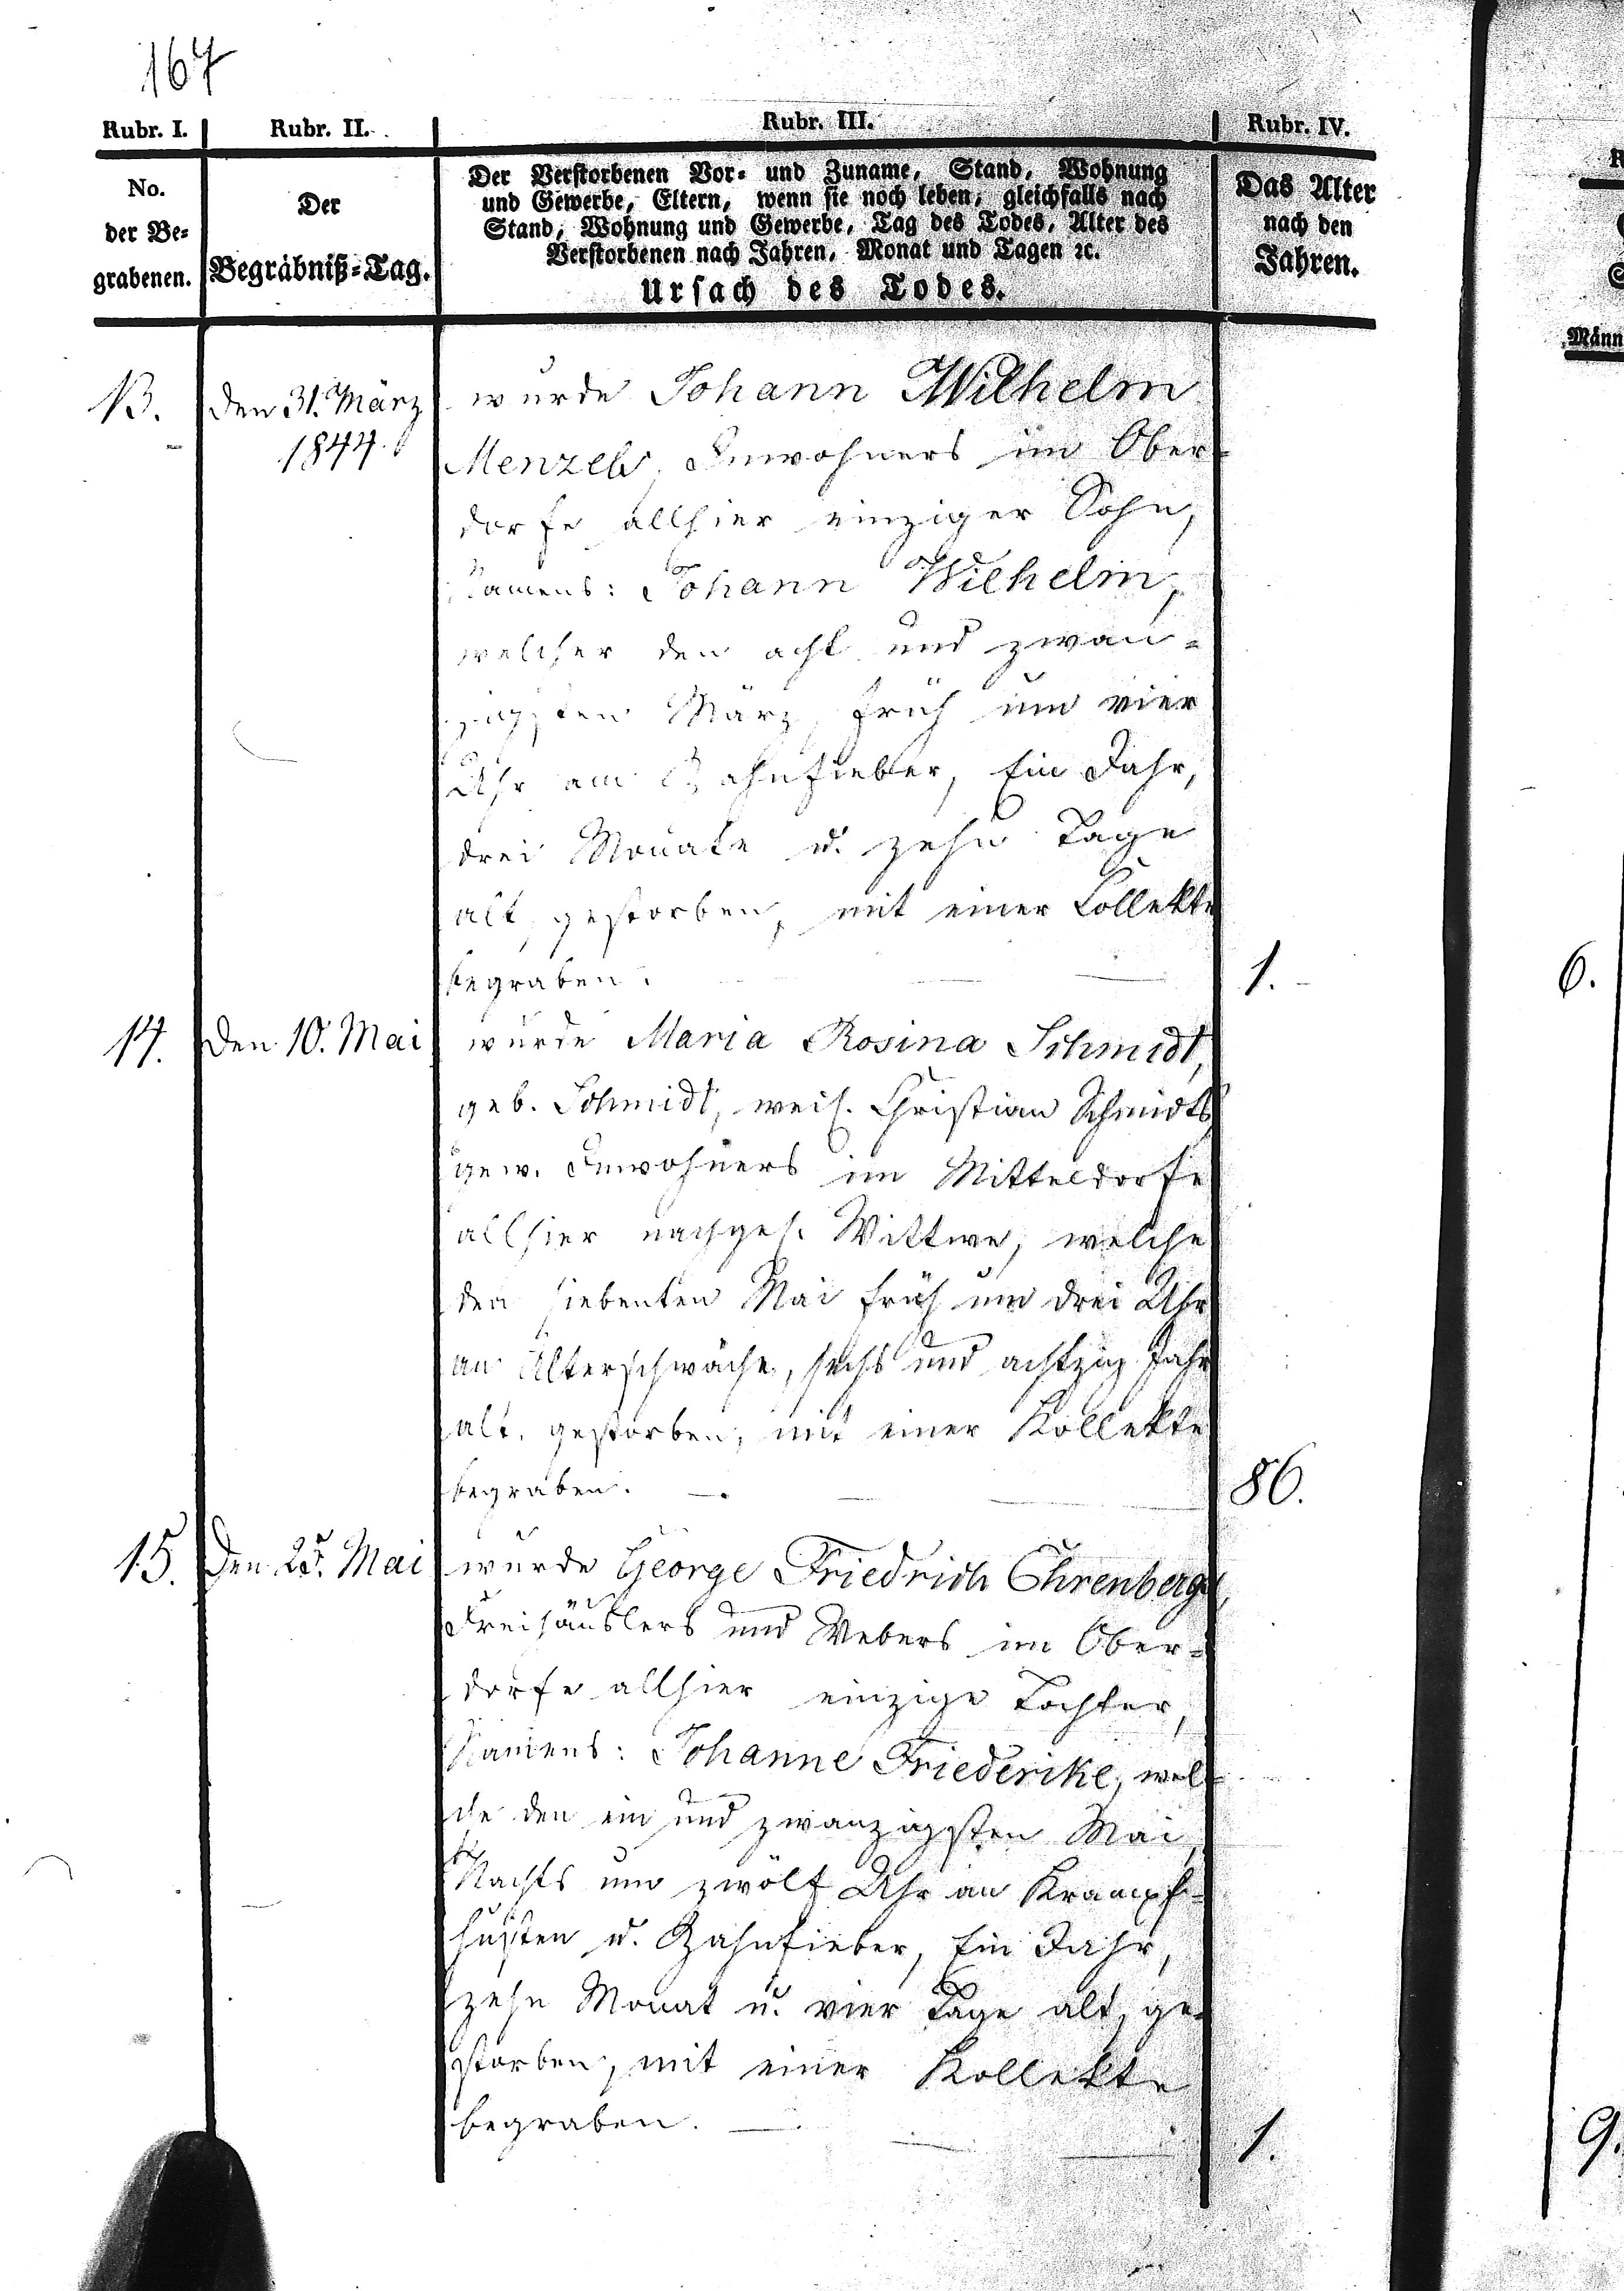 167
Rubr. I. Rubr. II. Rubr. III. Rubr. IV.
No.
der Be-
grabenen.
Der
Begräbniß-Tag.
Der Verstorbenen Vor- und Zuname, Stand, Wohnung
und Gewerbe, Eltern, wenn sie noch leben, gleichfalls nach
Stand, Wohnung und Gewerbe, Tag des Todes, Alter des
Verstorbenen nach Jahren, Monat und Tagen ꝛc.
Ursach des Todes.
Das Alter
nach den
Jahren.
Männ
13. den 31. März
1844.
wurde Johann Wilhelm
Menzels, Inwohners im Ober-
dorfe allhier einziger Sohn,
Namens: Johann Wilhelm,
welcher den acht und zwan-
zigsten März, früh um vier
Uhr am Zahnfieber, Ein Jahr,
drei Monate u. zehn Tage
alt, gestorben, mit einer Collekte
begraben. 1.
6.
14. den 10. Mai wurde Maria Rosina Schmidt,
geb. Schmidt, weil. Christian Schmidts
gew. Inwohners im Mitteldorfe
allhier nachgel. Wittwe, welche
den siebenten Mai früh um drei Uhr
an Alterschwäche, sechs und achtzig Jahr
alt, gestorben, mit einer Kollekte
begraben. 86.
15. den 25. Mai wurde George Friedrich Ehrenberg,
Freihäuslers und Webers im Ober-
dorfe allhier einzige Tochter,
Namens: Johanne Friederike, wel-
che den ein und zwanzigsten Mai,
Nachts um zwölf Uhr an Krampf-
husten u. Zahnfieber, Ein Jahr,
zehn Monat u. vier Tage alt, ge-
storben, mit einer Kollekte
begraben. 1.
9.